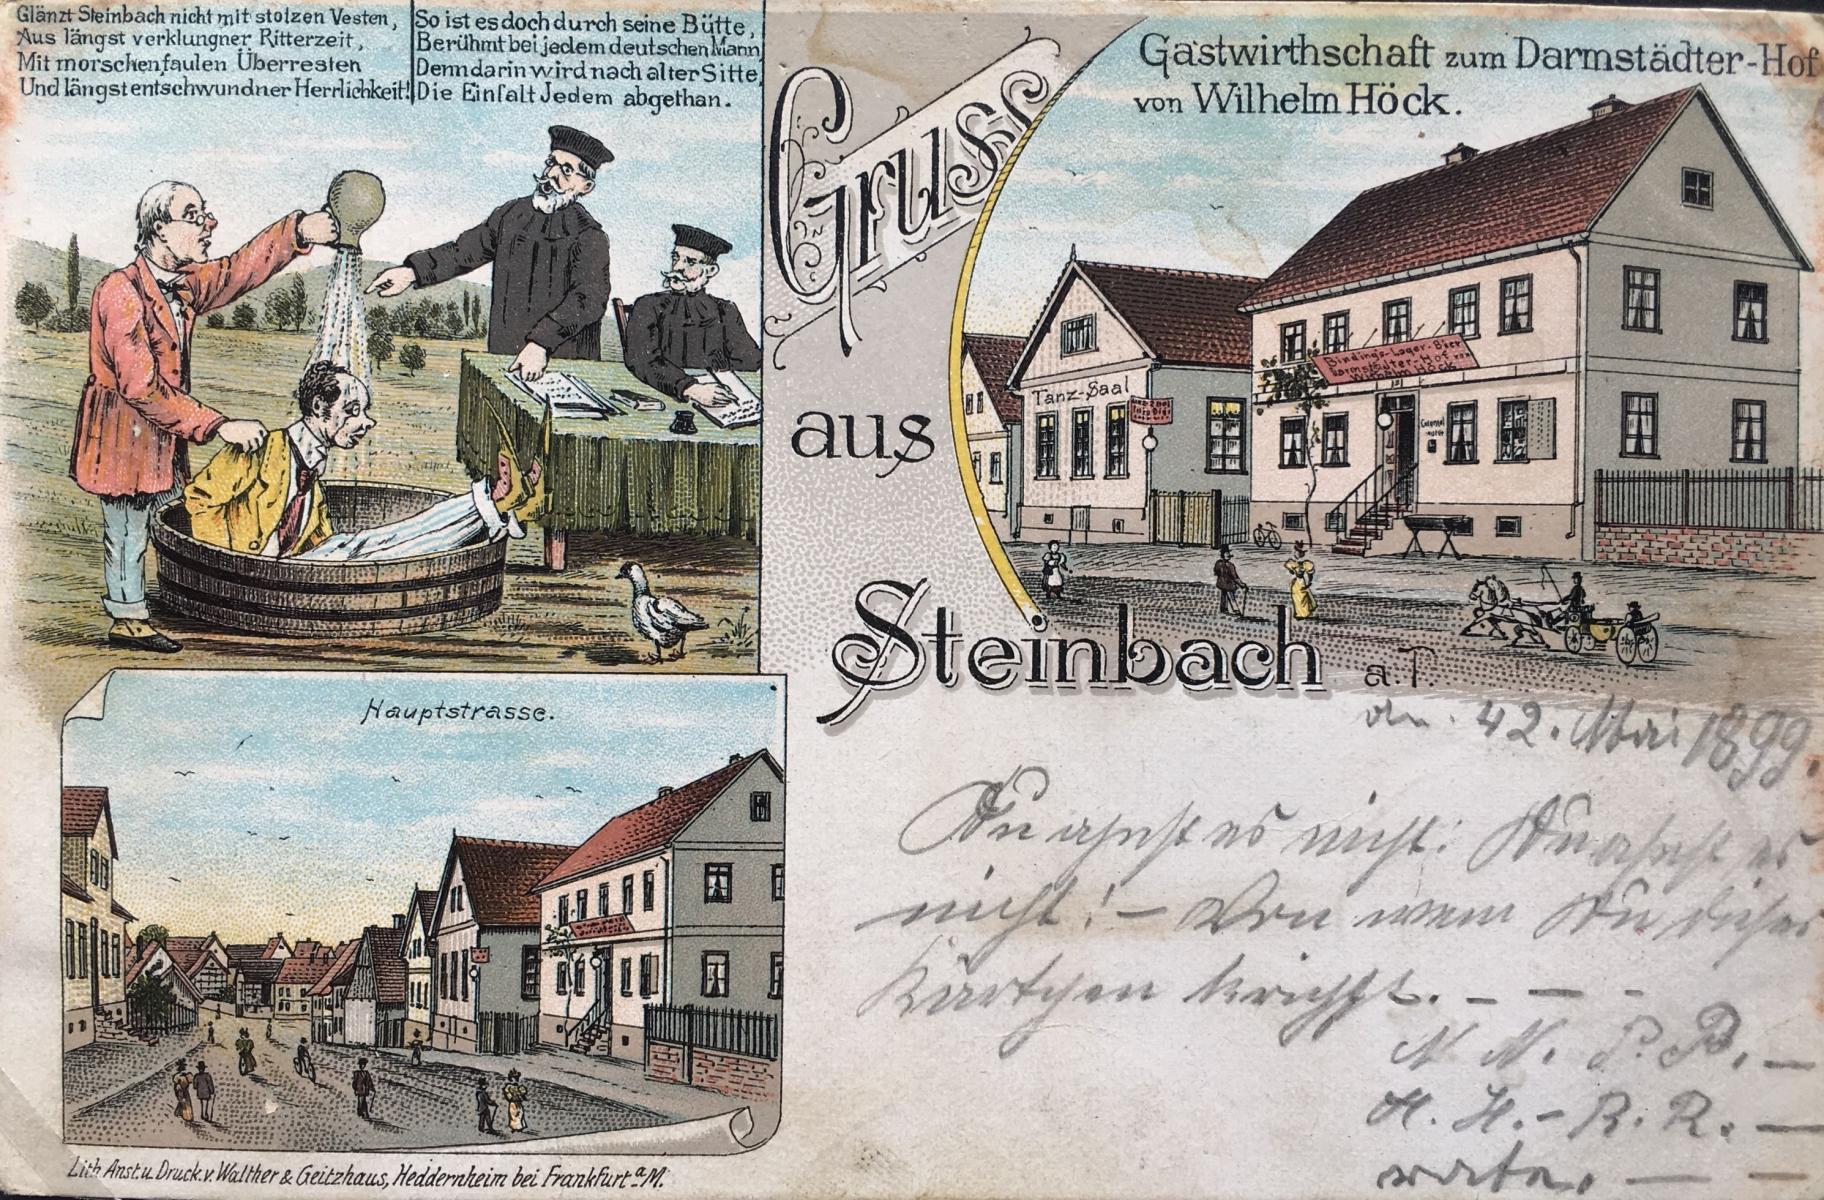 Glänzt Steinbach nicht mit stolzen Vesten,
Aus längst verklungner Ritterzeit,
Mit morschen, faulen Überresten
Und längst entschwundner Herrlichkeit!
So ist es doch durch seine Bütte,
Berühmt bei jedem deutschen Mann
Denn darin wird nach alter Sitte,
Die Einfalt Jedem abgethan.
Gruss
aus
Steinbach a. T.
Gastwirthschaft zum Darmstädter-Hof
von Wilhelm Höck.
Tanz-Saal
Binding's-Lager-Bier
Darmstädter-Hof von
Wilhelm Höck
Hauptstrasse.
Lith. Anst. u. Druck. v. Walther & Geitzhaus, Heddernheim bei Frankfurt a. M.
den. 42. Mai 1899.
Du ahnst es nicht! Du ahnst es
nicht! – Von wem Du dieses
Kärtchen kriegst. – – –
N. N. P. P. –
H. H. – R. R. –